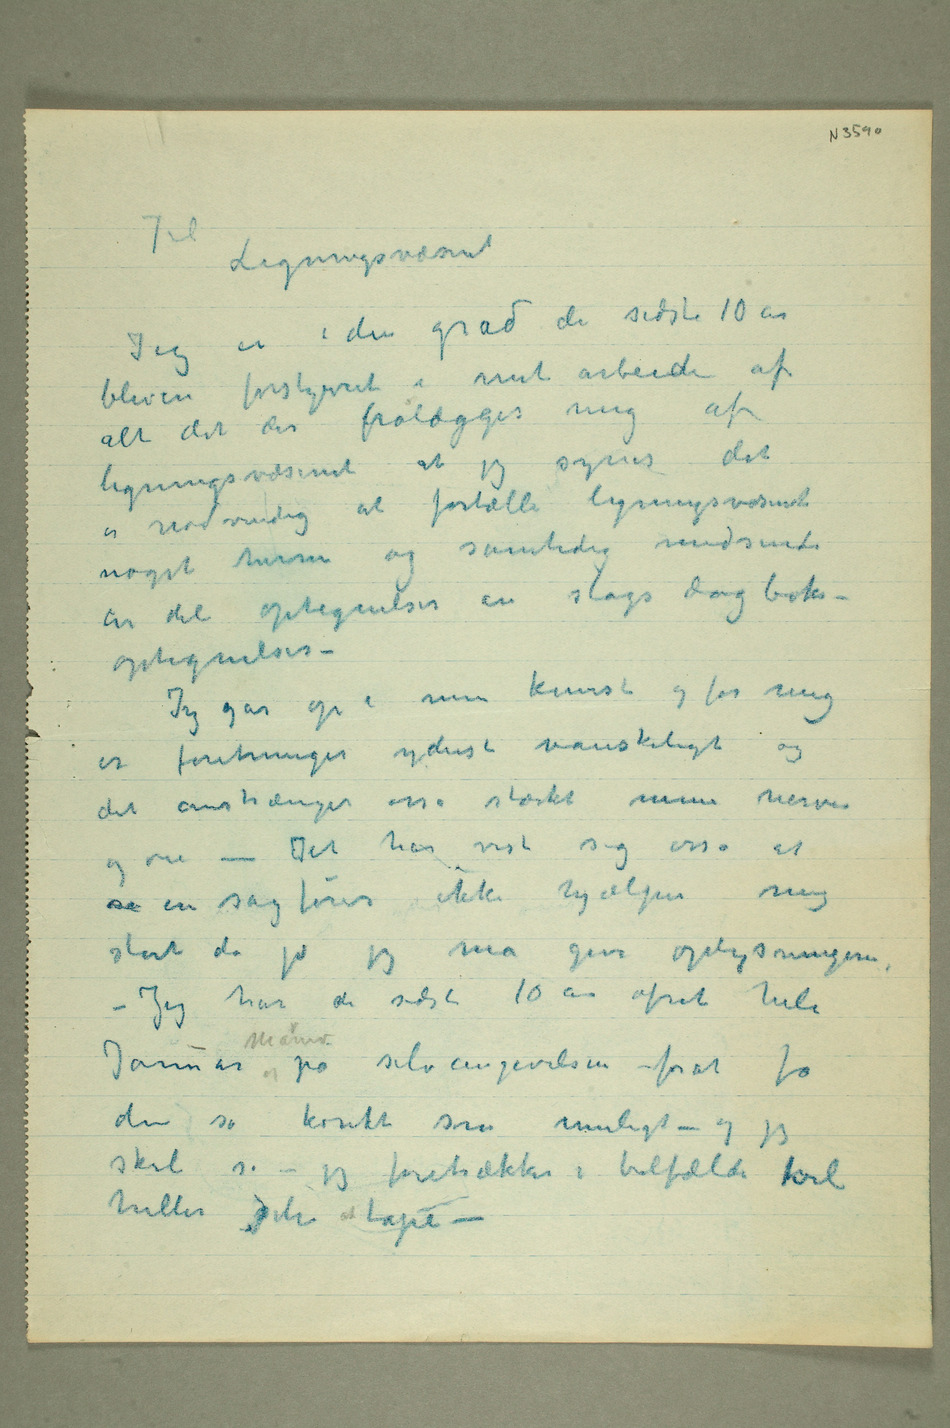 N 3590
Til
Ligningsvæsnet
Jeg er i den grad de sidste 10 år
bleven forstyrret i mit arbeide af
alt det der pålægges mig af
ligningsvæsenet at jeg synes det
er nødvendig at fortælle ligningsvæsenet
noget herom og samtidig medsende
en del optegnelser en slags dagboks-
optegnelser –
Jeg går op i min kunst og for mig
er forretninger yderst vanskeligt og
det anstrænger osså stærkt mine nerver
og øie — Det har vist sig osså at
en sagfører ikke hjælper mig
stort da jo jeg må give oplysningerne,
– Jeg har de sidste 10 år ofret hele
Januar måned
og på selvangivelsen – for at få
den så korekt som muligt – og jeg
skal si – jeg foretrækker i tvilfælde
heller at tape —